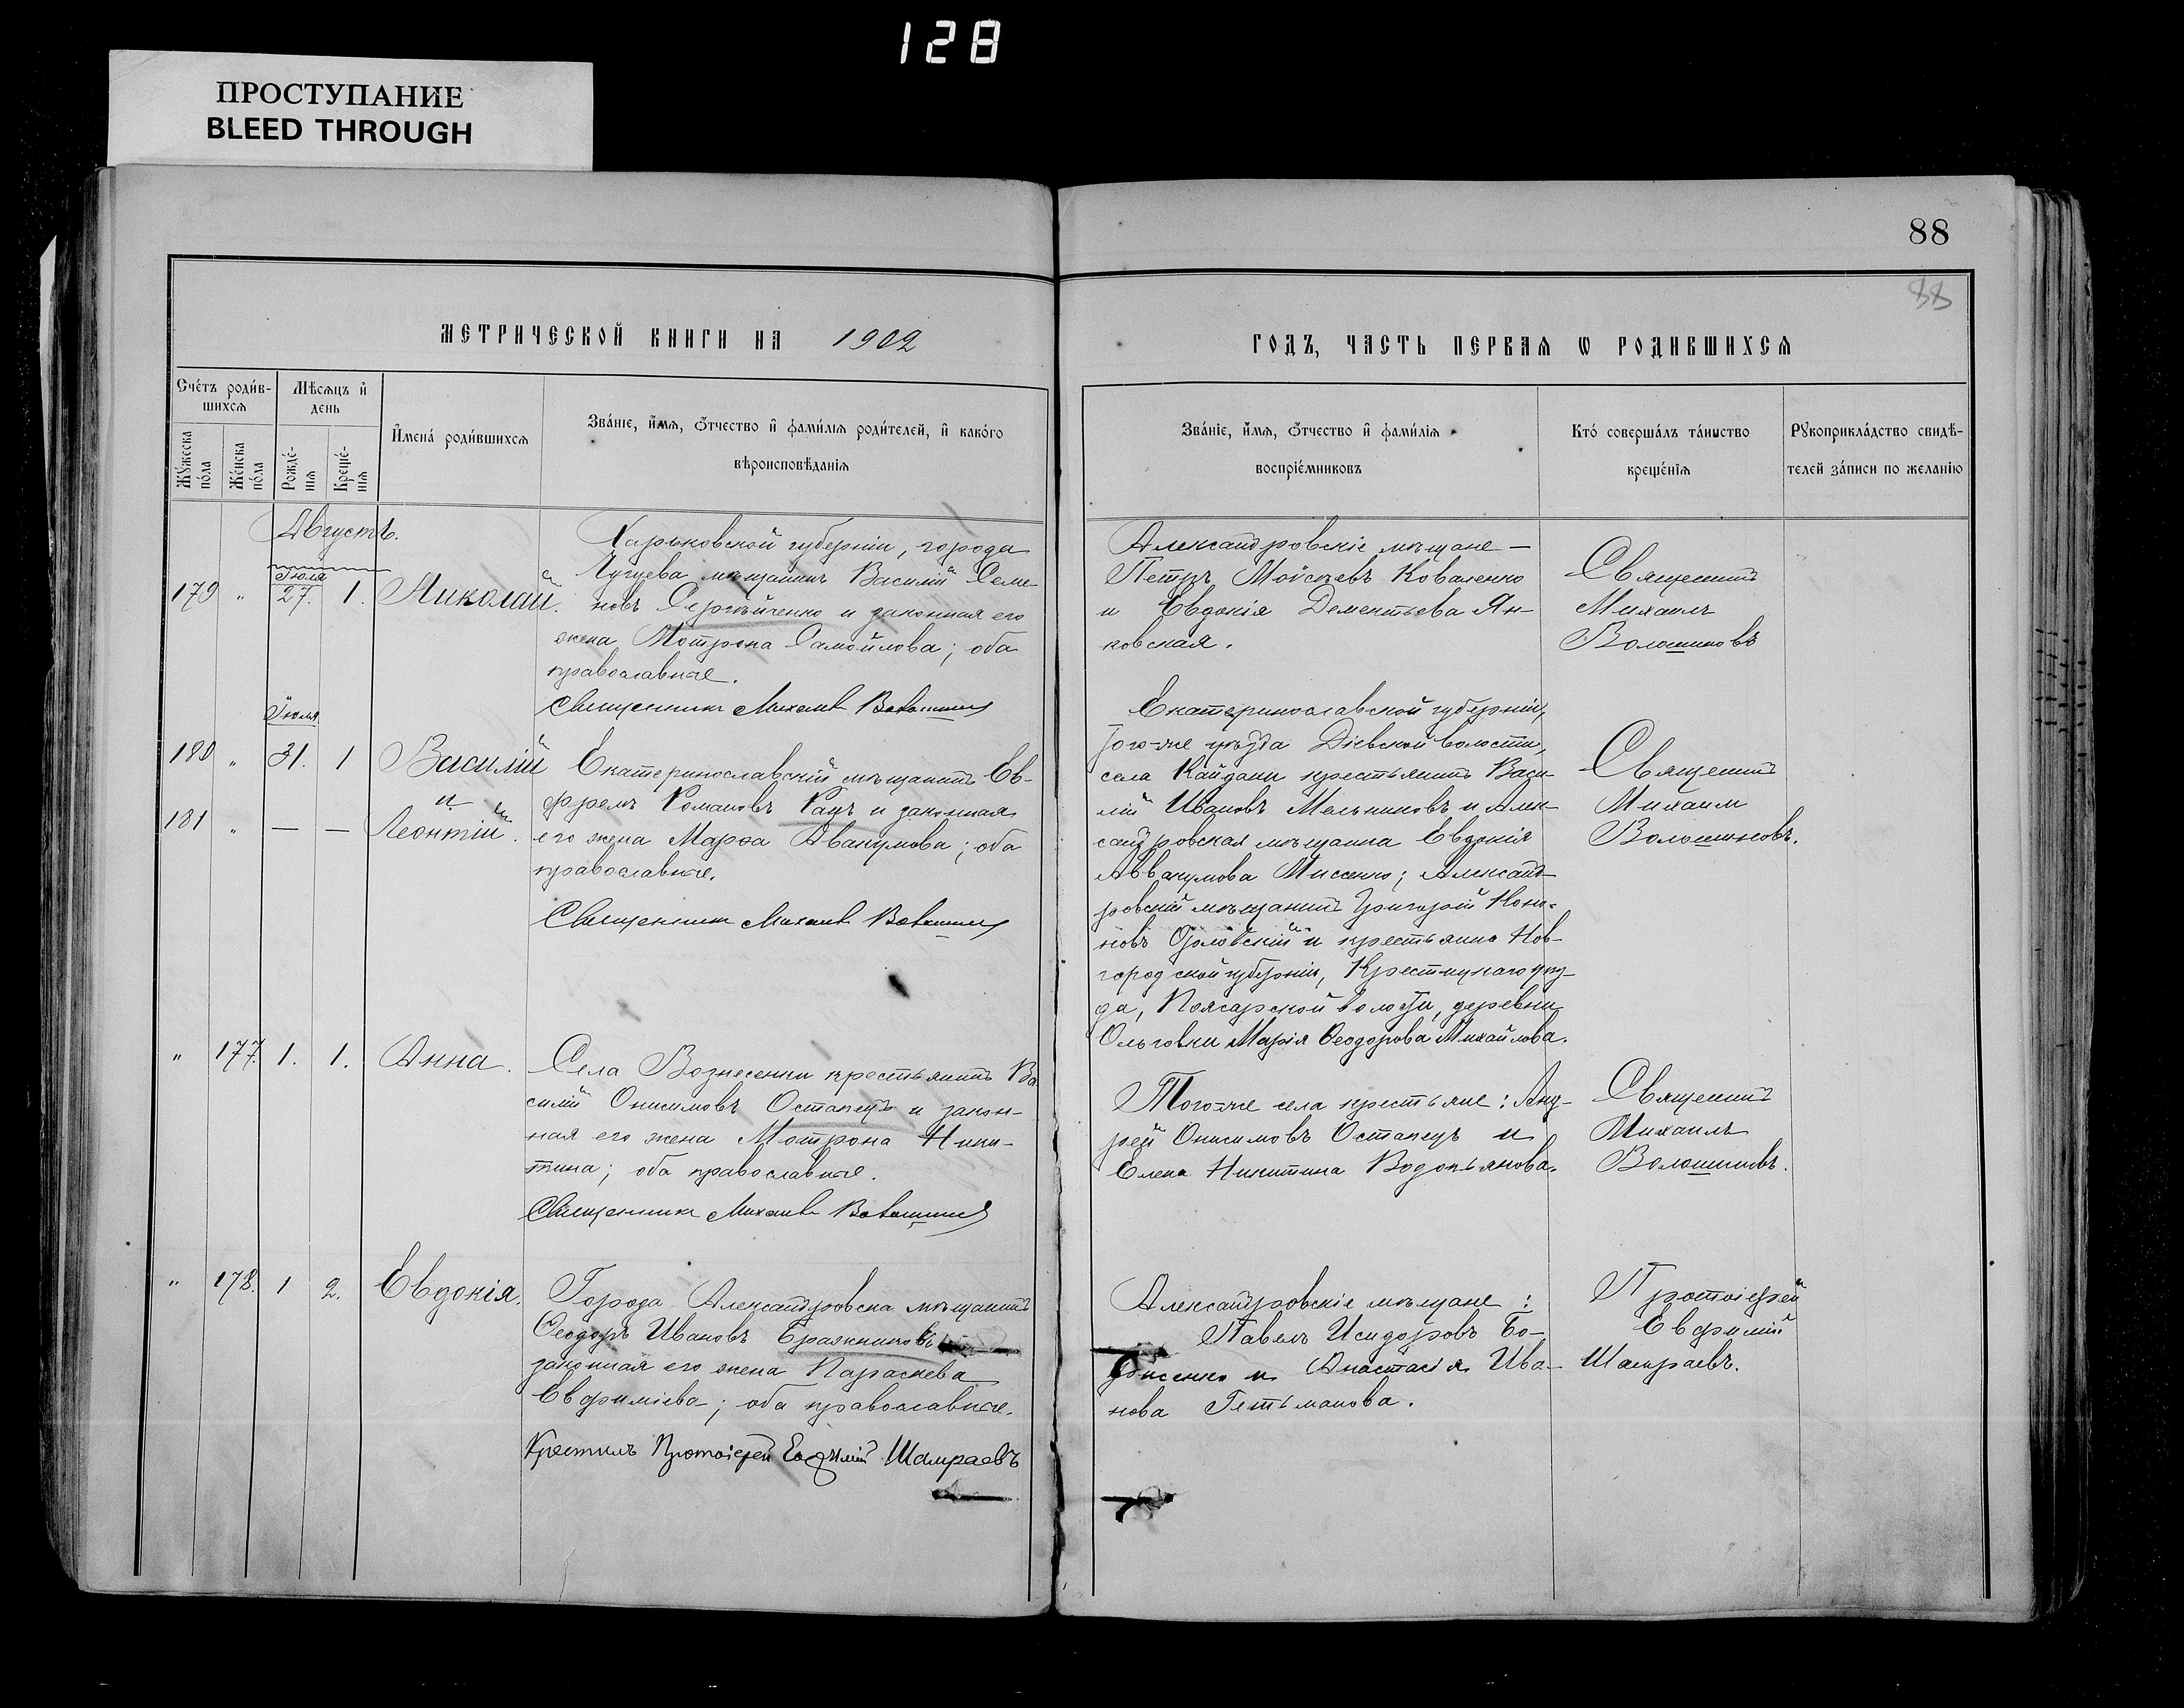 128
ПРОСТУПАНИЕ
BLEED THROUGH
88
88
МЕТРИЧЕСКОЙ КНИГИ НА 1902
ГОДЪ, ЧАСТЬ ПЕРВАЯ Ѡ РОДИВШИХСЯ
Счéтъ роди́в-
шихсѧ
Мѣсѧцъ и҆
день
И҆мена́ роди́вшихсѧ
Зва́нїе, и҆́мѧ, ѻ҆́тчество и҆ фами́лїѧ роди́телей, и҆ како́го
вѣроисповѣ́данїѧ
Мꙋ́жеска
по́ла
Же́нска
по́ла
Рожде́-
нїѧ
Креще́-
нїѧ
Зва́нїе, и҆́мѧ, ѻ҆́тчество и҆ фами́лїѧ
воспрїе́мниковъ
Кто́ соверша́лъ та́инство
креще́нїѧ
Рꙋкоприкла́дство свидѣ́-
телей за́писи по жела́нїю
Августъ.
Іюля
179 " 27. 1. Николай.
Харьковской губерніи, города
Чугуева мѣщанинъ Василій Семе-
новъ Сергѣйченко и законная его
жена Мотрона Самойлова; оба
православные.
Священникъ Михаилъ Волошиновъ
Александровскіе мѣщане —
Петръ Моисеевъ Коваленко
и Евдокія Дементьева Ян-
ковская.
Священникъ
Михаилъ
Волошиновъ
Іюля
180 " 31. 1 Василій
и
181 " — — Леонтій.
Екатеринославскій мѣщанинъ Еф-
фремъ Романовъ Кацъ и законная
его жена Марѳа Авакумова; оба
православные.
Священникъ Михаилъ Волошиновъ
Екатеринославской губерніи,
того-же уѣзда Діевской волости,
села Кайданы крестьянинъ Васи-
лій Ивановъ Мельниковъ и Алек-
сандровская мѣщанка Евдокія
Аввакумова Мисенко; Александ-
ровскій мѣщанинъ Григорій Коно-
новъ Орловскій и крестьянка Нов-
городской губерніи, Крестецкаго уѣз-
да, волости, деревни
Ольговки Марія Ѳеодорова Михайлова.
Священникъ
Михаилъ
Волошиновъ.
" 177. 1. 1. Анна.
Села Вознесенки крестьянинъ Ва-
силій Онисимовъ Остапецъ и закон-
ная его жена Мотрона Ники-
тина; оба православные.
Священникъ Михаилъ Волошиновъ
Того-же села крестьяне: Анд-
рей Онисимовъ Остапецъ и
Елена Никитина Водопьянова.
Священникъ
Михаилъ
Волошиновъ.
" 178. 1 2. Евдокія.
Города Александровска мѣщанинъ
Ѳеодоръ Ивановъ Бражниковъ
законная его жена Параскева
Евфиміева; оба православные.
Крестилъ Протоіерей Евѳимій Шамраевъ
Александровскіе мѣщане:
Павелъ Исидоровъ Бо-
рисенко и Анастасія Ива-
нова Гетьманова.
Протоіерей
Евфимій
Шамраевъ.